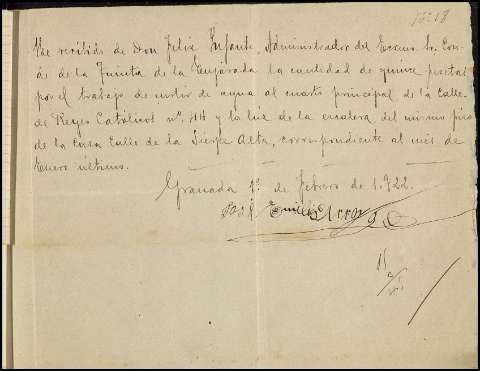 He recibido de Don Felix Infante, Administrador del Excmo. Sr. Con-
de de la Quinta de la Enjarada la cantidad de quince pesetas
por el trabajo de surtir de agua al cuarto principal de la Calle
de Reyes Catolicos nº. 44 y la luz de la escalera del mismo piso
de la Casa Calle de la Sierpe Alta, correspondiente al mes de
Enero ultimo.
Granada 1º de Febrero de 1.922.
Emilio Arroyo
15